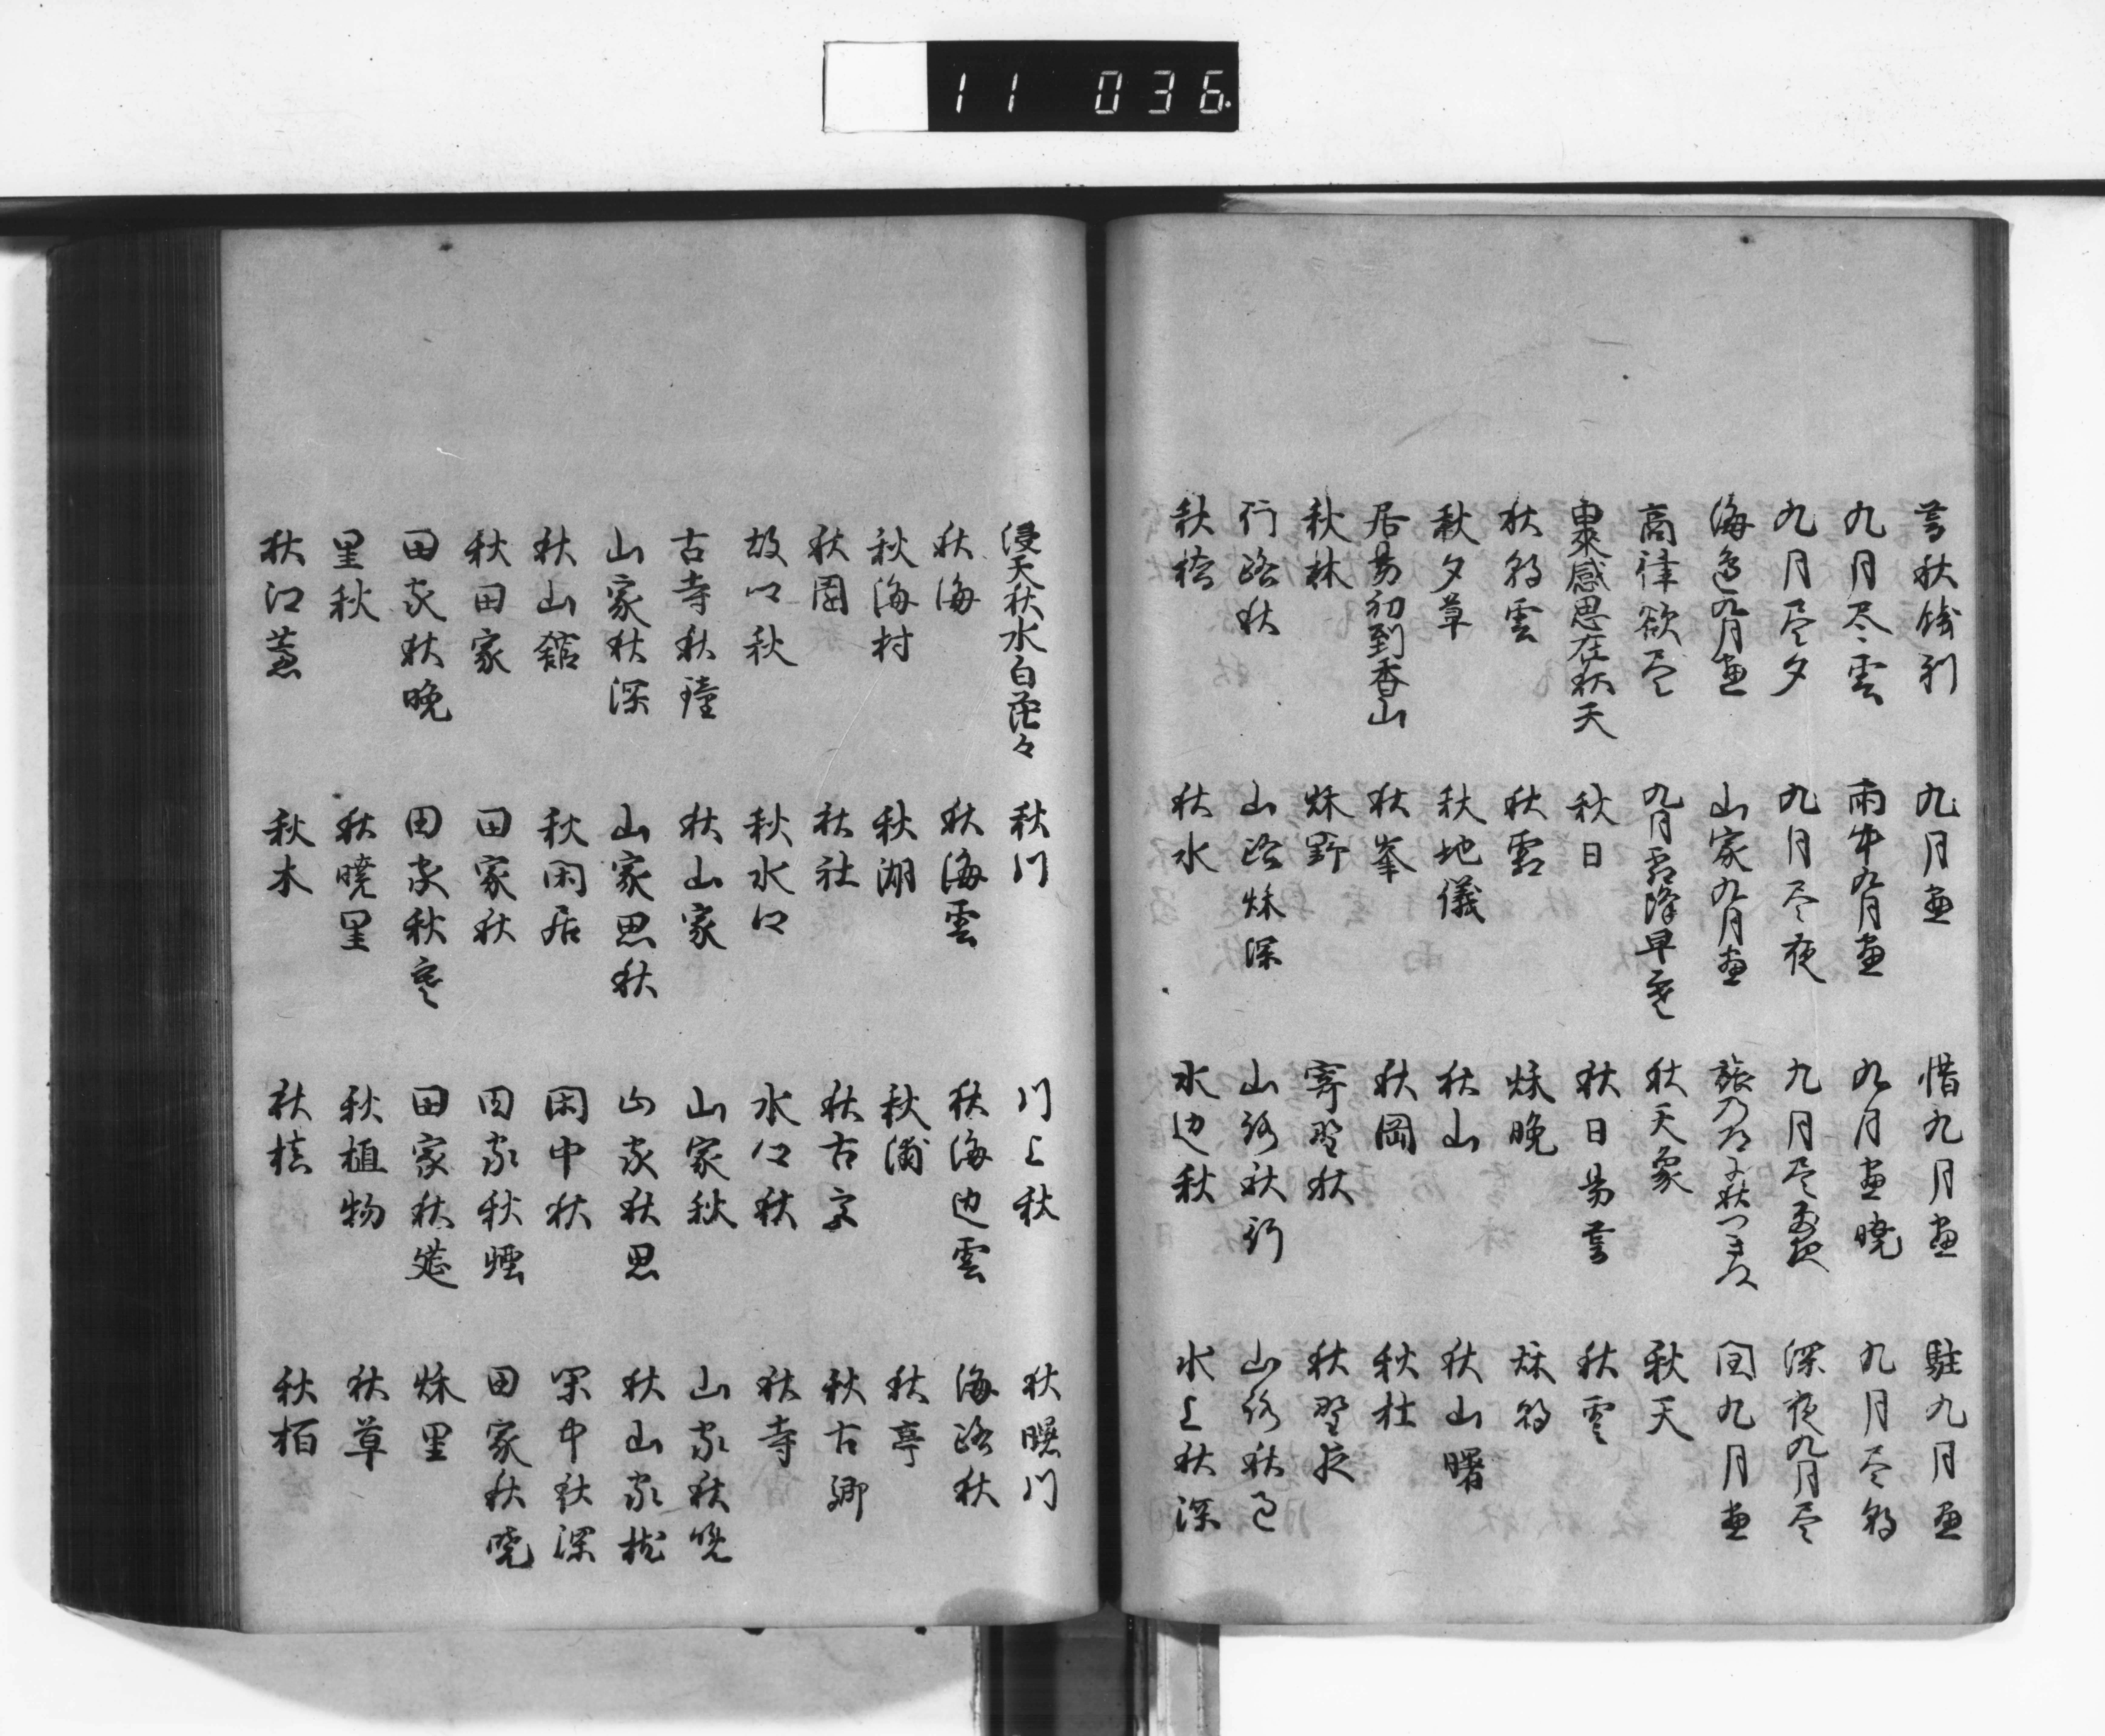 11 036
暮秋餞別 九月盡 惜九月盡 駐九月盡
九月尽雲 雨中九月盡 九月盡暁 九月尽朝
九月尽夕 九月尽夜 九月尽 深夜九月尽
海邊九月盡 山家九月盡 閏九月盡
商律欲尽 九月霜降早寒 秋天象 秋天
感思在秋天 秋日 秋日易暮 秋雲
秋朝雲 秋霜 秋晩 秋朝
秋夕草 秋地儀 秋山 秋山曙
居易初到香山 秋峯 秋岡 秋杜
秋林 秌野 寄野秋 秋野夜
行路秋 山路秌深 山路秋行 山路秋過
秋橋 秋水 水辺秋 水上秋深
浸天秋水白茫々 秋川 川上秋 秋曉川
秋海 秋海雲 秋海辺雲 海路秋
秋海村 秋湖 秋浦 秋亭
秋園 秋社 秋古寺 秋古郷
故郷秋 秋水郷 水郷秋 秋寺
古寺秋鐘 秋山家 山家秋 山家秋晩
山家秋深 山家思秋 山家秋思 秋山家
秋山館 秋閑居 閑中秋 閑中秋深
秋田家 田家秋 田家秋煙 田家秋暁
田家秋晩 田家秋寒 田家秋 秌里
里秋 秋曉里 秋植物 秋草
秋江 秋木 秋 秋栢